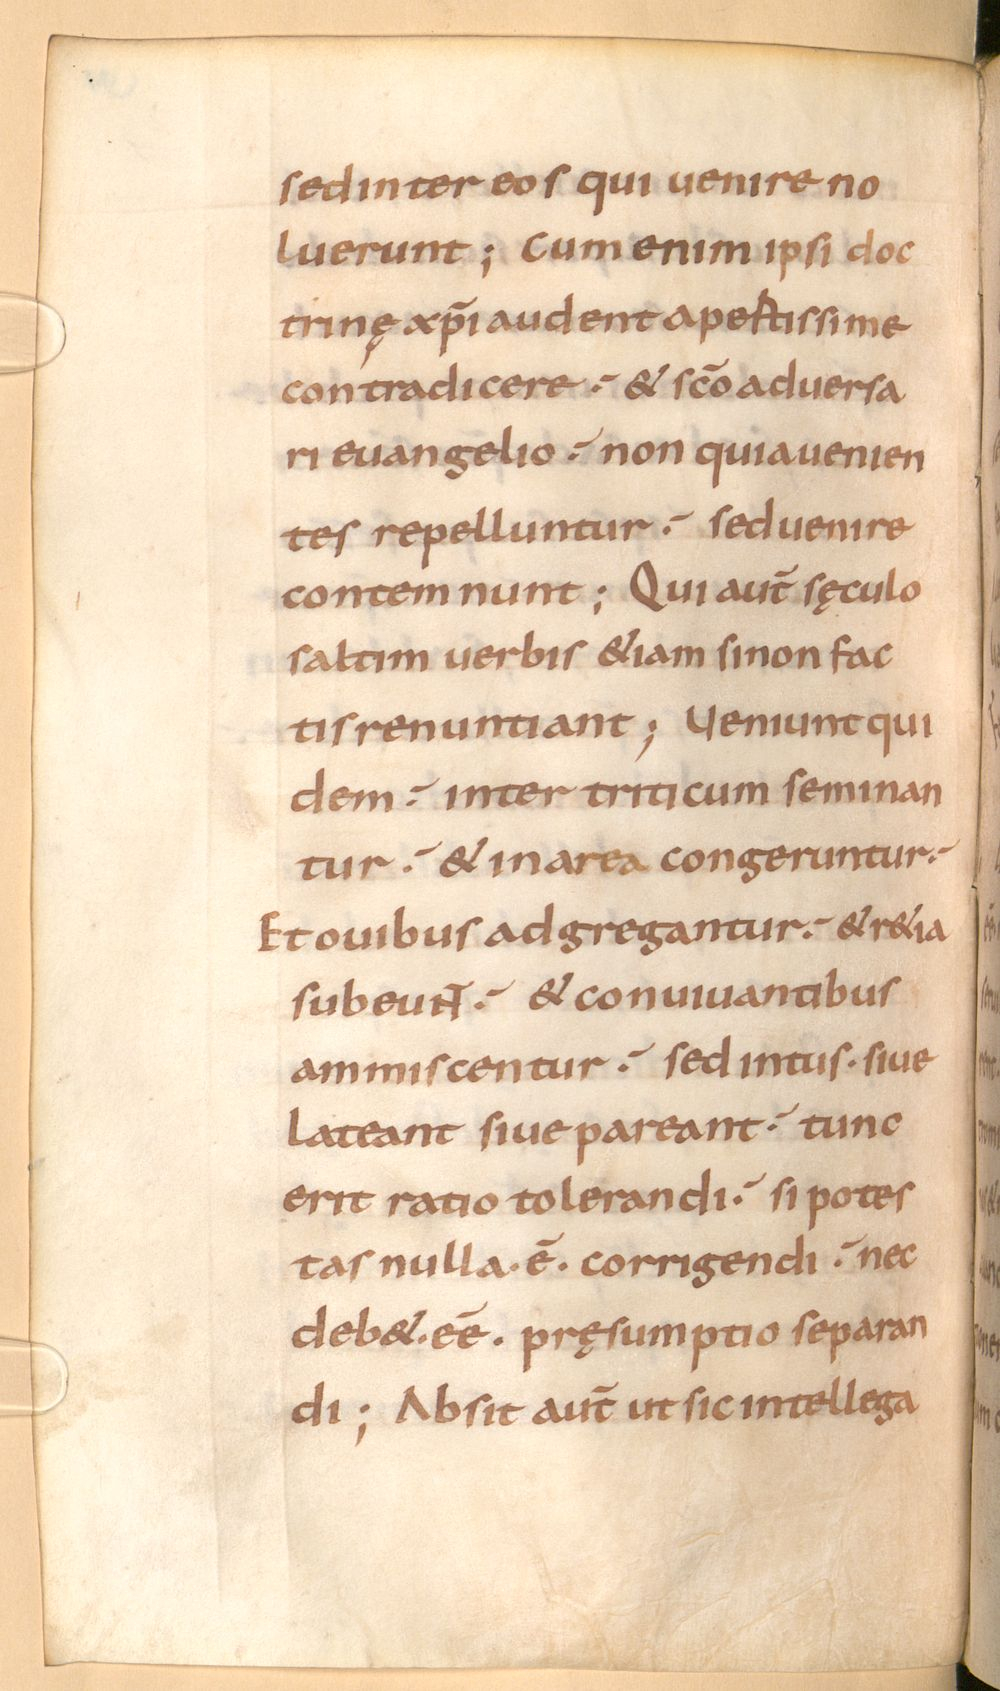 sed inter eos qui uenire no
luerunt ; Cum enim ipsi doc
trinę xp̄i audent apertissime
contradicere . & sc̄o aduersa
ri euangelio . non quia uenien
tes repelluntur . sed uenire
contemnunt ; Qui aut̄ sęculo
saltim uerbis &iam si non fac
tis renuntiant ; Ueniunt qui
dem . inter triticum seminan
tur . & in area congeruntur .
Et ouibus adgregantur . & r&ia
subeunt . & conuiuantibus
ammiscentur . sed intus . siue
lateant siue pareant . tunc
erit ratio tolerandi . si potes
tas nulla . ē . corrigendi . nec
deb& . eē . pręsumptio separan
di ; Absit aut̄ ut sic intellega